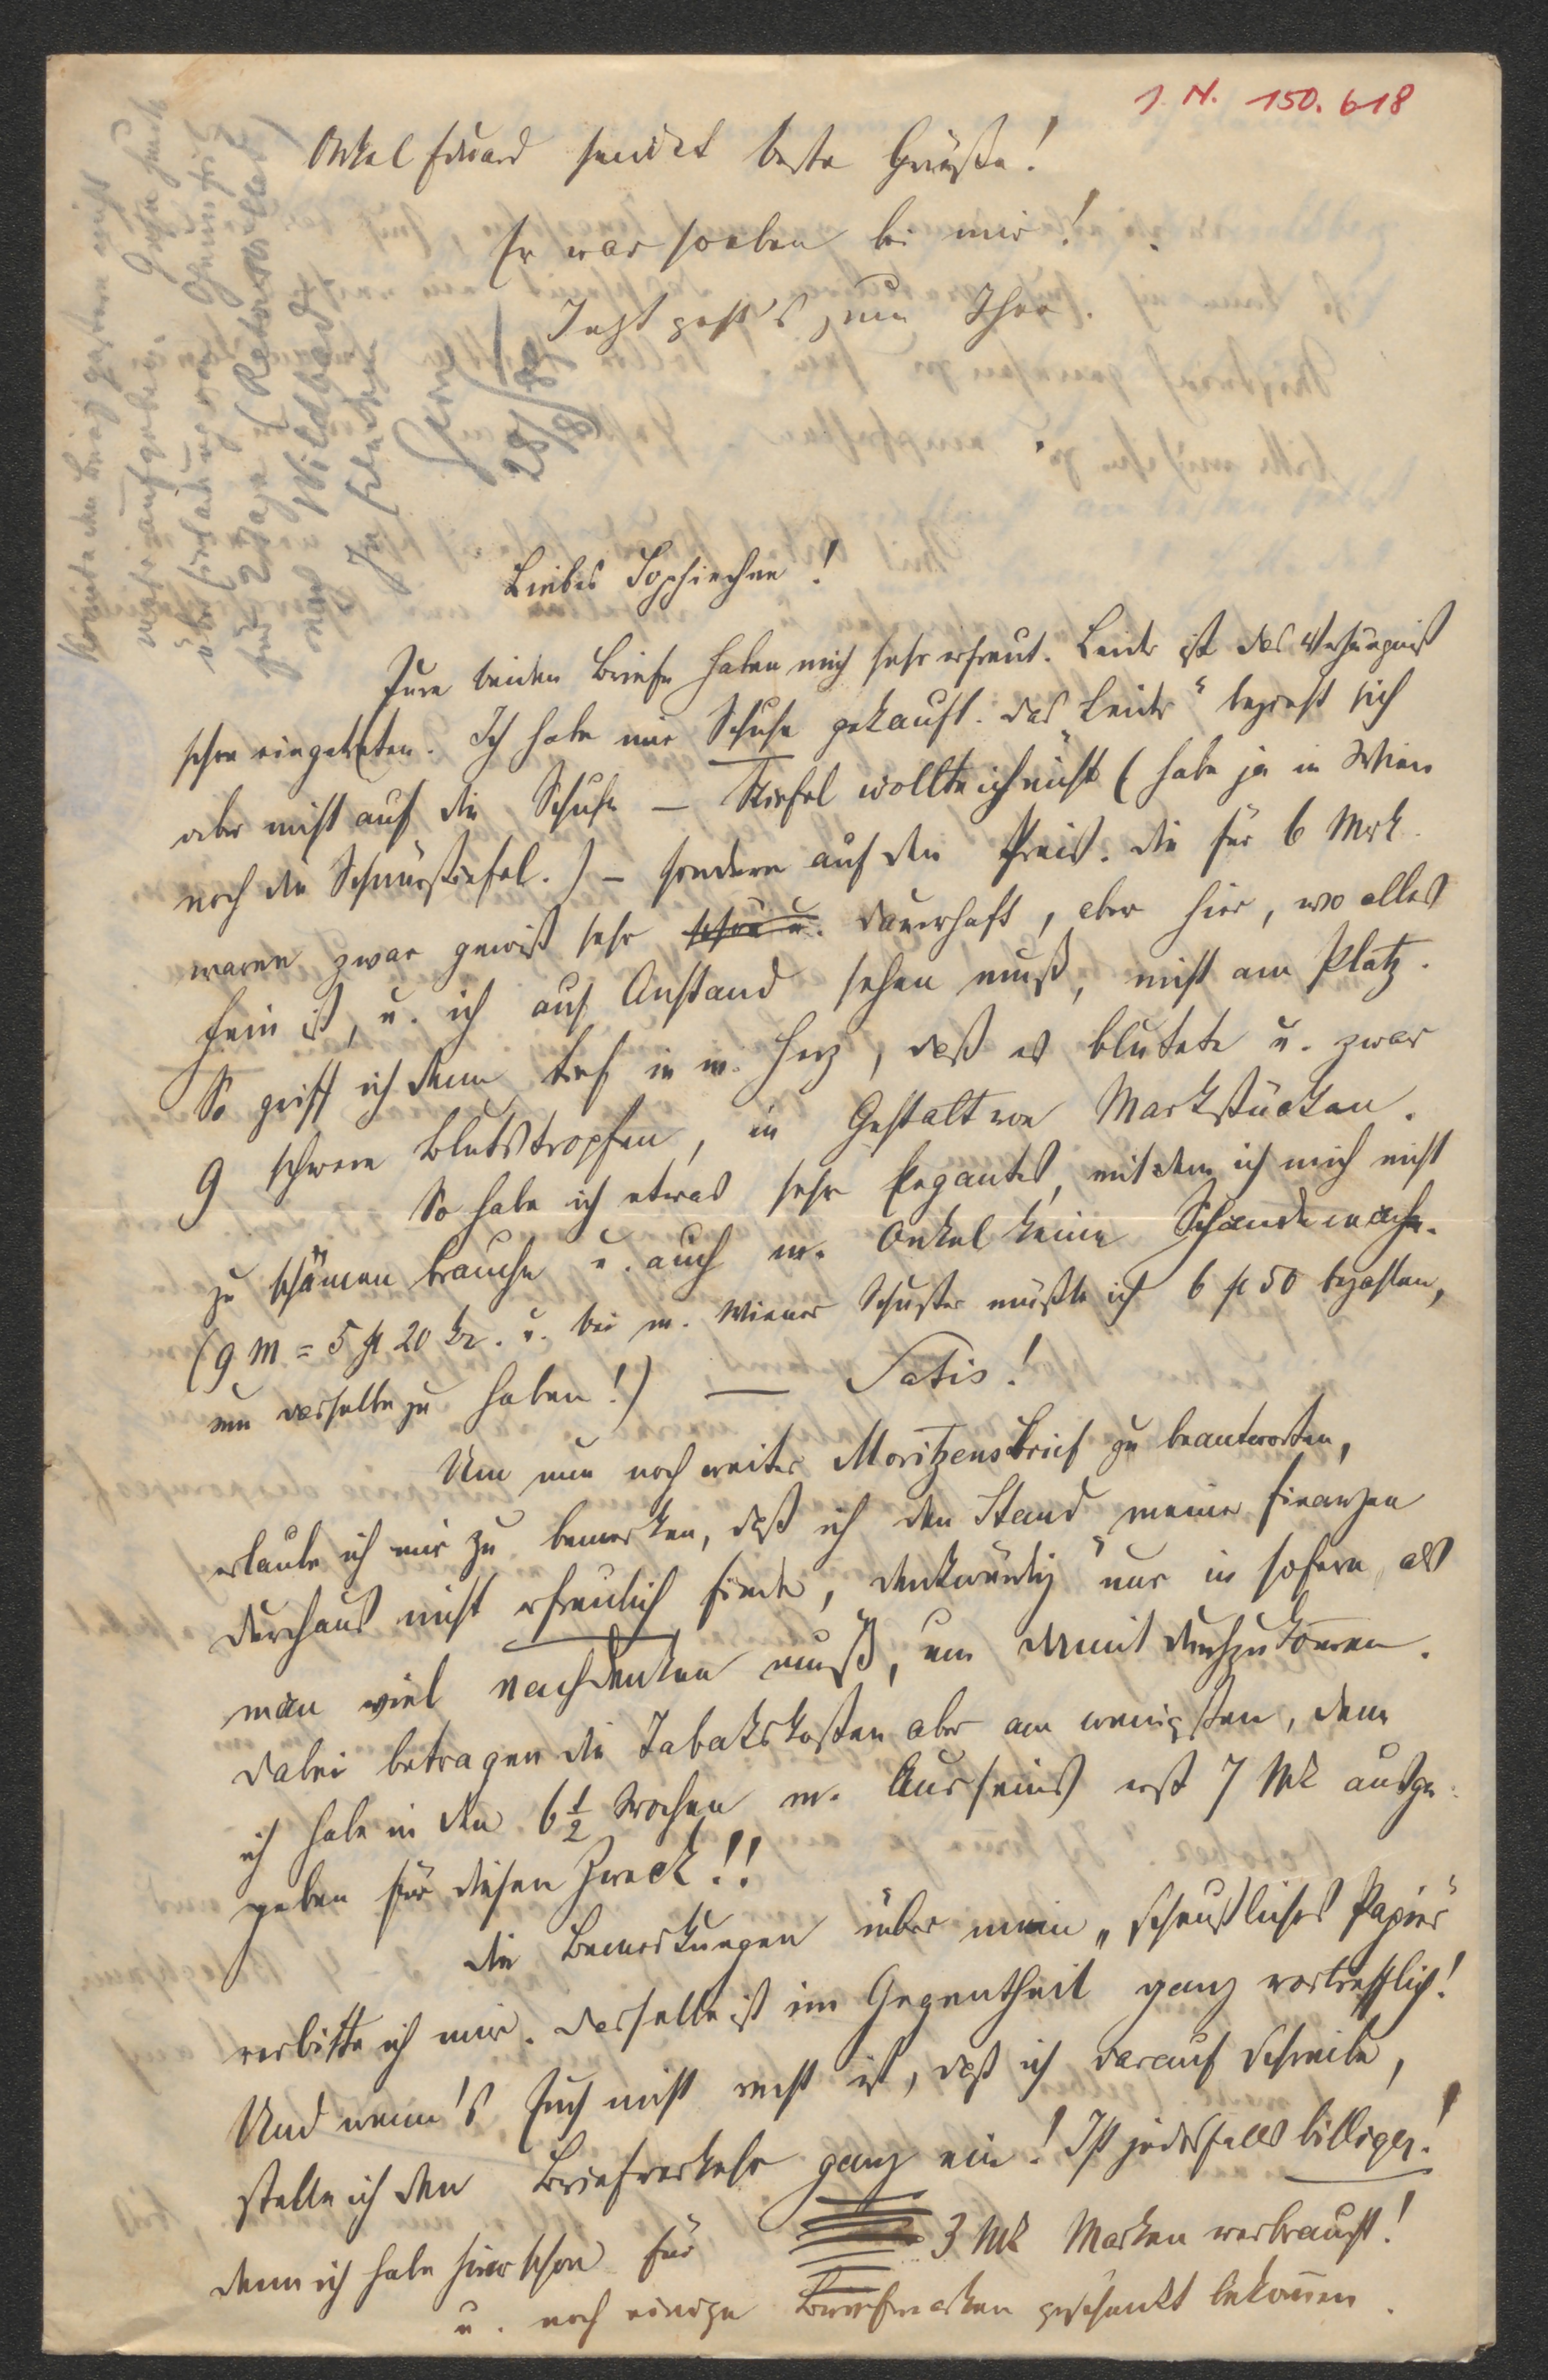 J. N. 150.618
Onkel Eduard sendet beste Grüße!
Er war soeben bei mir!
Jetzt geht's zum Thee.
Konnte den Brief gestern nicht
mehr aufgeben.
für 2 Tage (Retourbillet)
nach Wildbad
28/8 89
Liebes Sophiechen!
Eure beiden Briefe haben mich sehr erfreut. Leider ist das Verhängniß
schon eingetreten. Ich habe mir Schuhe gekauft. Das „Leider" bezieht sich
aber nicht auf die Schuhe — Stiefel wollte ich nicht (habe ja in Wien
noch die Schnürstiefel.) — sondern auf den Preis. Die für 6 Mrk.
waren zwar gewiß sehr schön u. dauerhaft, aber hier, wo alles
fein ist, u. ich auf Anstand sehen muß, nicht am Platz.
So griff ich denn tief in m. Herz, daß es blutete u. zwar
9 schwere Blutstropfen, in Gestalt von Markstücken.
So habe ich etwas sehr Elegantes, mit dem ich mich nicht
zu schämen brauche u. auch m. Onkel keine Schande mache.
(9 M = 5 fl 20 kr. u. bei m. Wiener Schuster müßte ich 6 fl 50 bezahlen,
um dasselbe zu haben!) — Satis!
Um nun noch weiter Moritzens Brief zu beantworten,
erlaube ich mir zu bemerken, daß ich den Stand meiner Finanzen
durchaus nicht erfreulich finde, „denkwürdig" nur in sofern, als
man viel nachdenken muß, um damit durchzukommen.
Dabei betragen die Tabakskosten aber am wenigsten, denn
ich habe in den 6 1/2 Wochen m. Ausseins erst 7 Mk ausge-
geben für diesen Zweck!!
Die Bemerkungen über mein „scheußliches Papier"
verbitte ich mir. Dasselbe ist im Gegentheil ganz vortrefflich!
Und wenn's Euch nicht recht ist, daß ich darauf schreibe,
stelle ich den Briefverkehr ganz ein! Ist jedesfalls billiger!
denn ich habe hier schon für 3 Mk Marken verbraucht!
u. noch einige Briefmarken geschenkt bekommen.